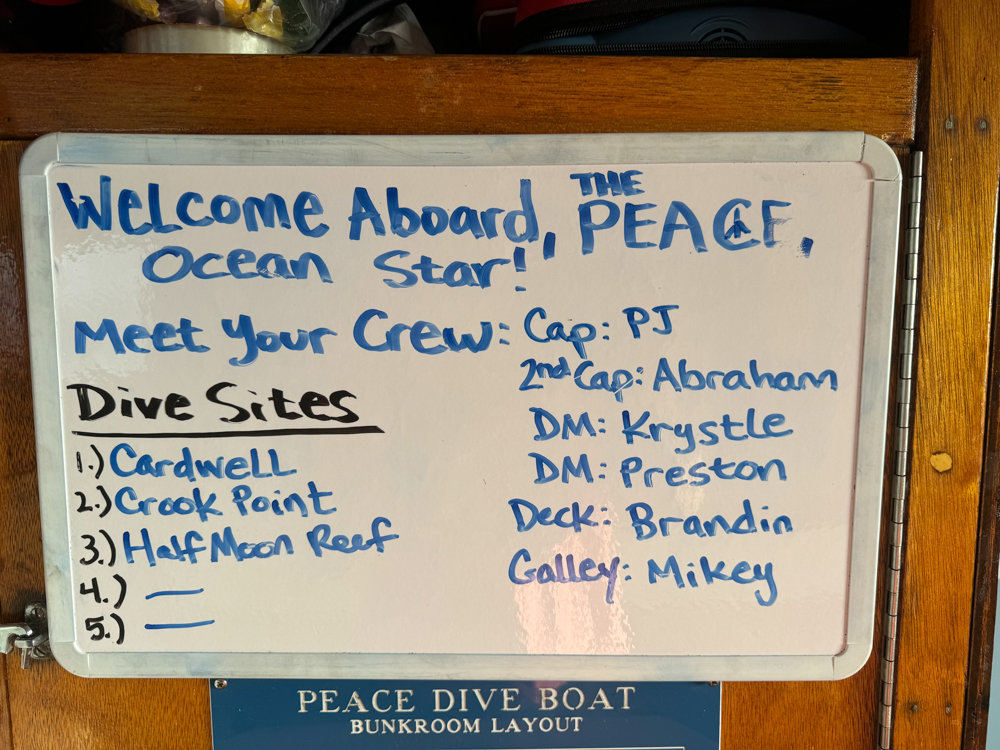 Welcome Aboard, THE PEACE,
Ocean Star!
Meet Your Crew: Cap: PJ
2nd Cap: Abraham
DM: Krystle
DM: Preston
Deck: Brandin
Galley: Mikey
Dive Sites
1.) Cardwell
2.) Crook Point
3.) Half Moon Reef
4.) —
5.) —
PEACE DIVE BOAT
BUNKROOM LAYOUT